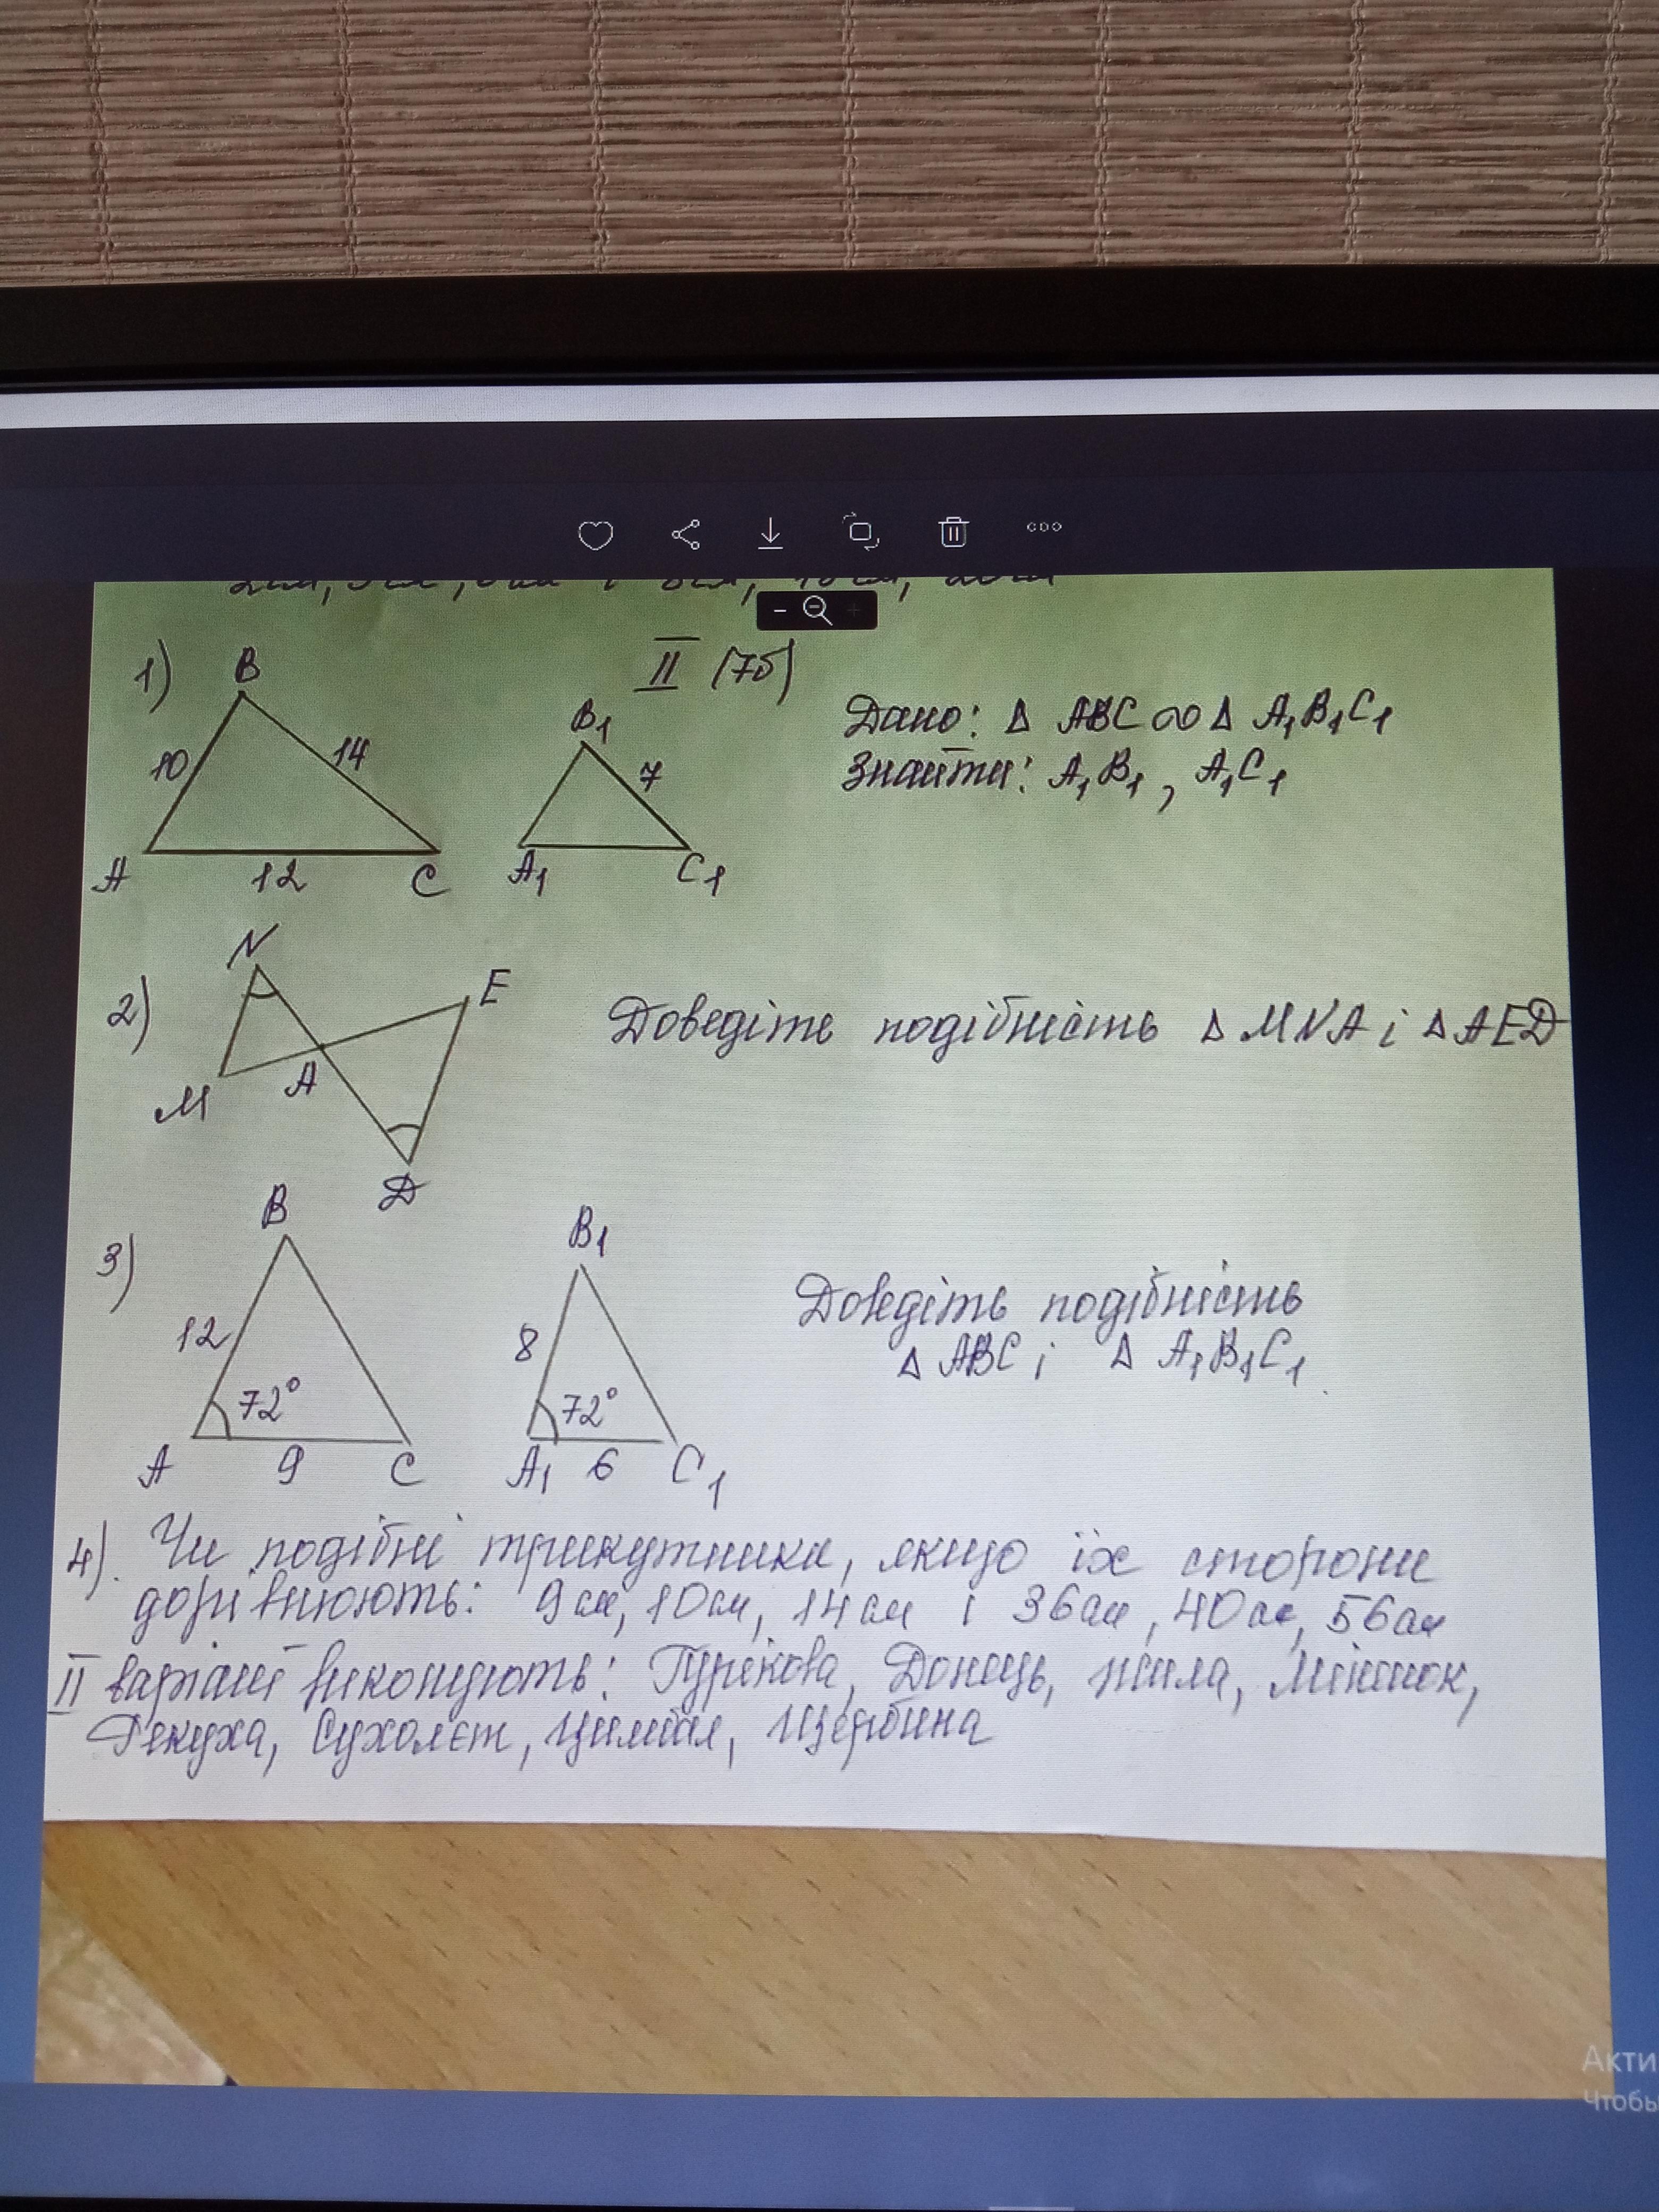 1)
B
10
14
A
12
C
II (7б)
B1
7
A1
C1
Дано: Δ ABC ∾ Δ A1B1C1
Знайти: A1B1, A1C1
2)
N
E
M
A
D
Доведіть подібність Δ MNA і Δ AED
3)
B
12
72°
A
9
C
B1
8
72°
A1
6
C1
Доведіть подібність
Δ ABC і Δ A1B1C1
4). Чи подібні трикутники, якщо їх сторони
дорівнюють: 9см, 10см, 14см і 36см, 40см, 56см
II варіант виконують: Донець,
Сухолєт, Щербина
Акти
Чтобы